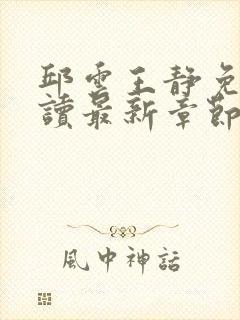 邱雲王靜免
讀最新章節
風中神話